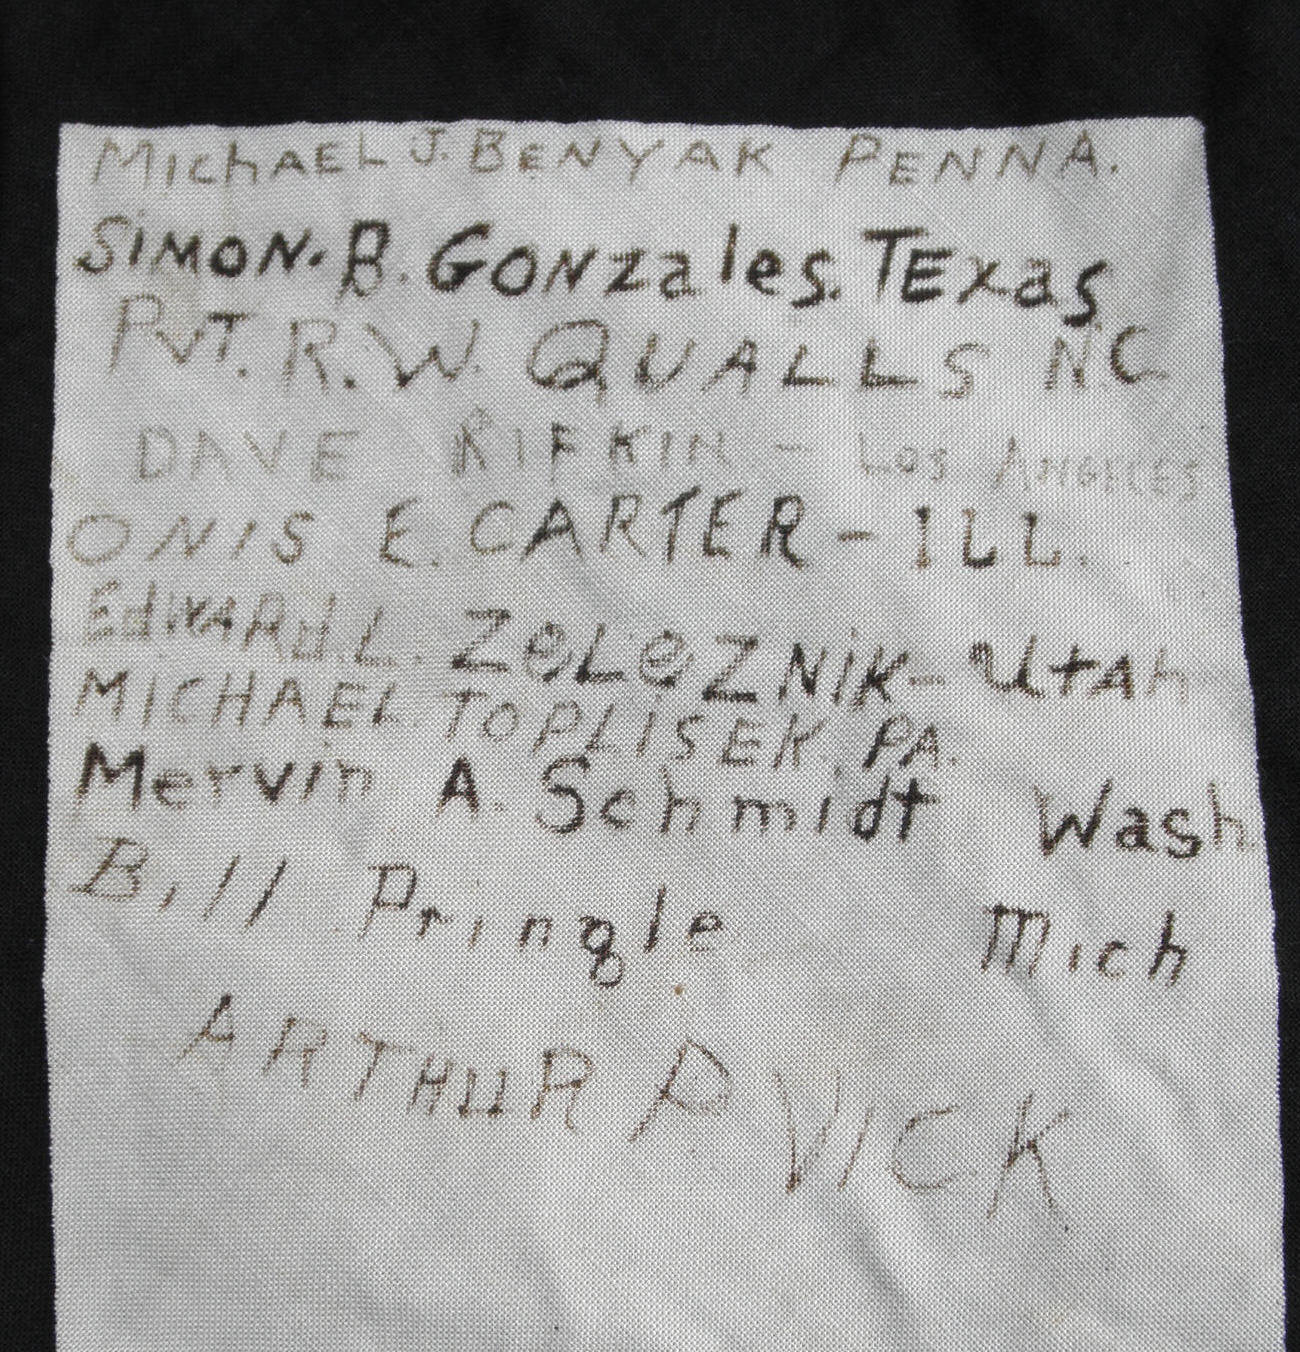 MIChAEL J. BENYAK PENNA.
SiMON. B. GONzales. TExas
PvT. R. W. QUALLS N.C
DAVE RIFKIN - Los ANGELES
ONIS E. CARTER - ILL.
EdWARd. L. ZeLeZNiK - UtAh
MICHAEL TOPLISEK. PA.
Mervin A. Schmidt Wash
Bill Pringle Mich
ARTHUR P VICK